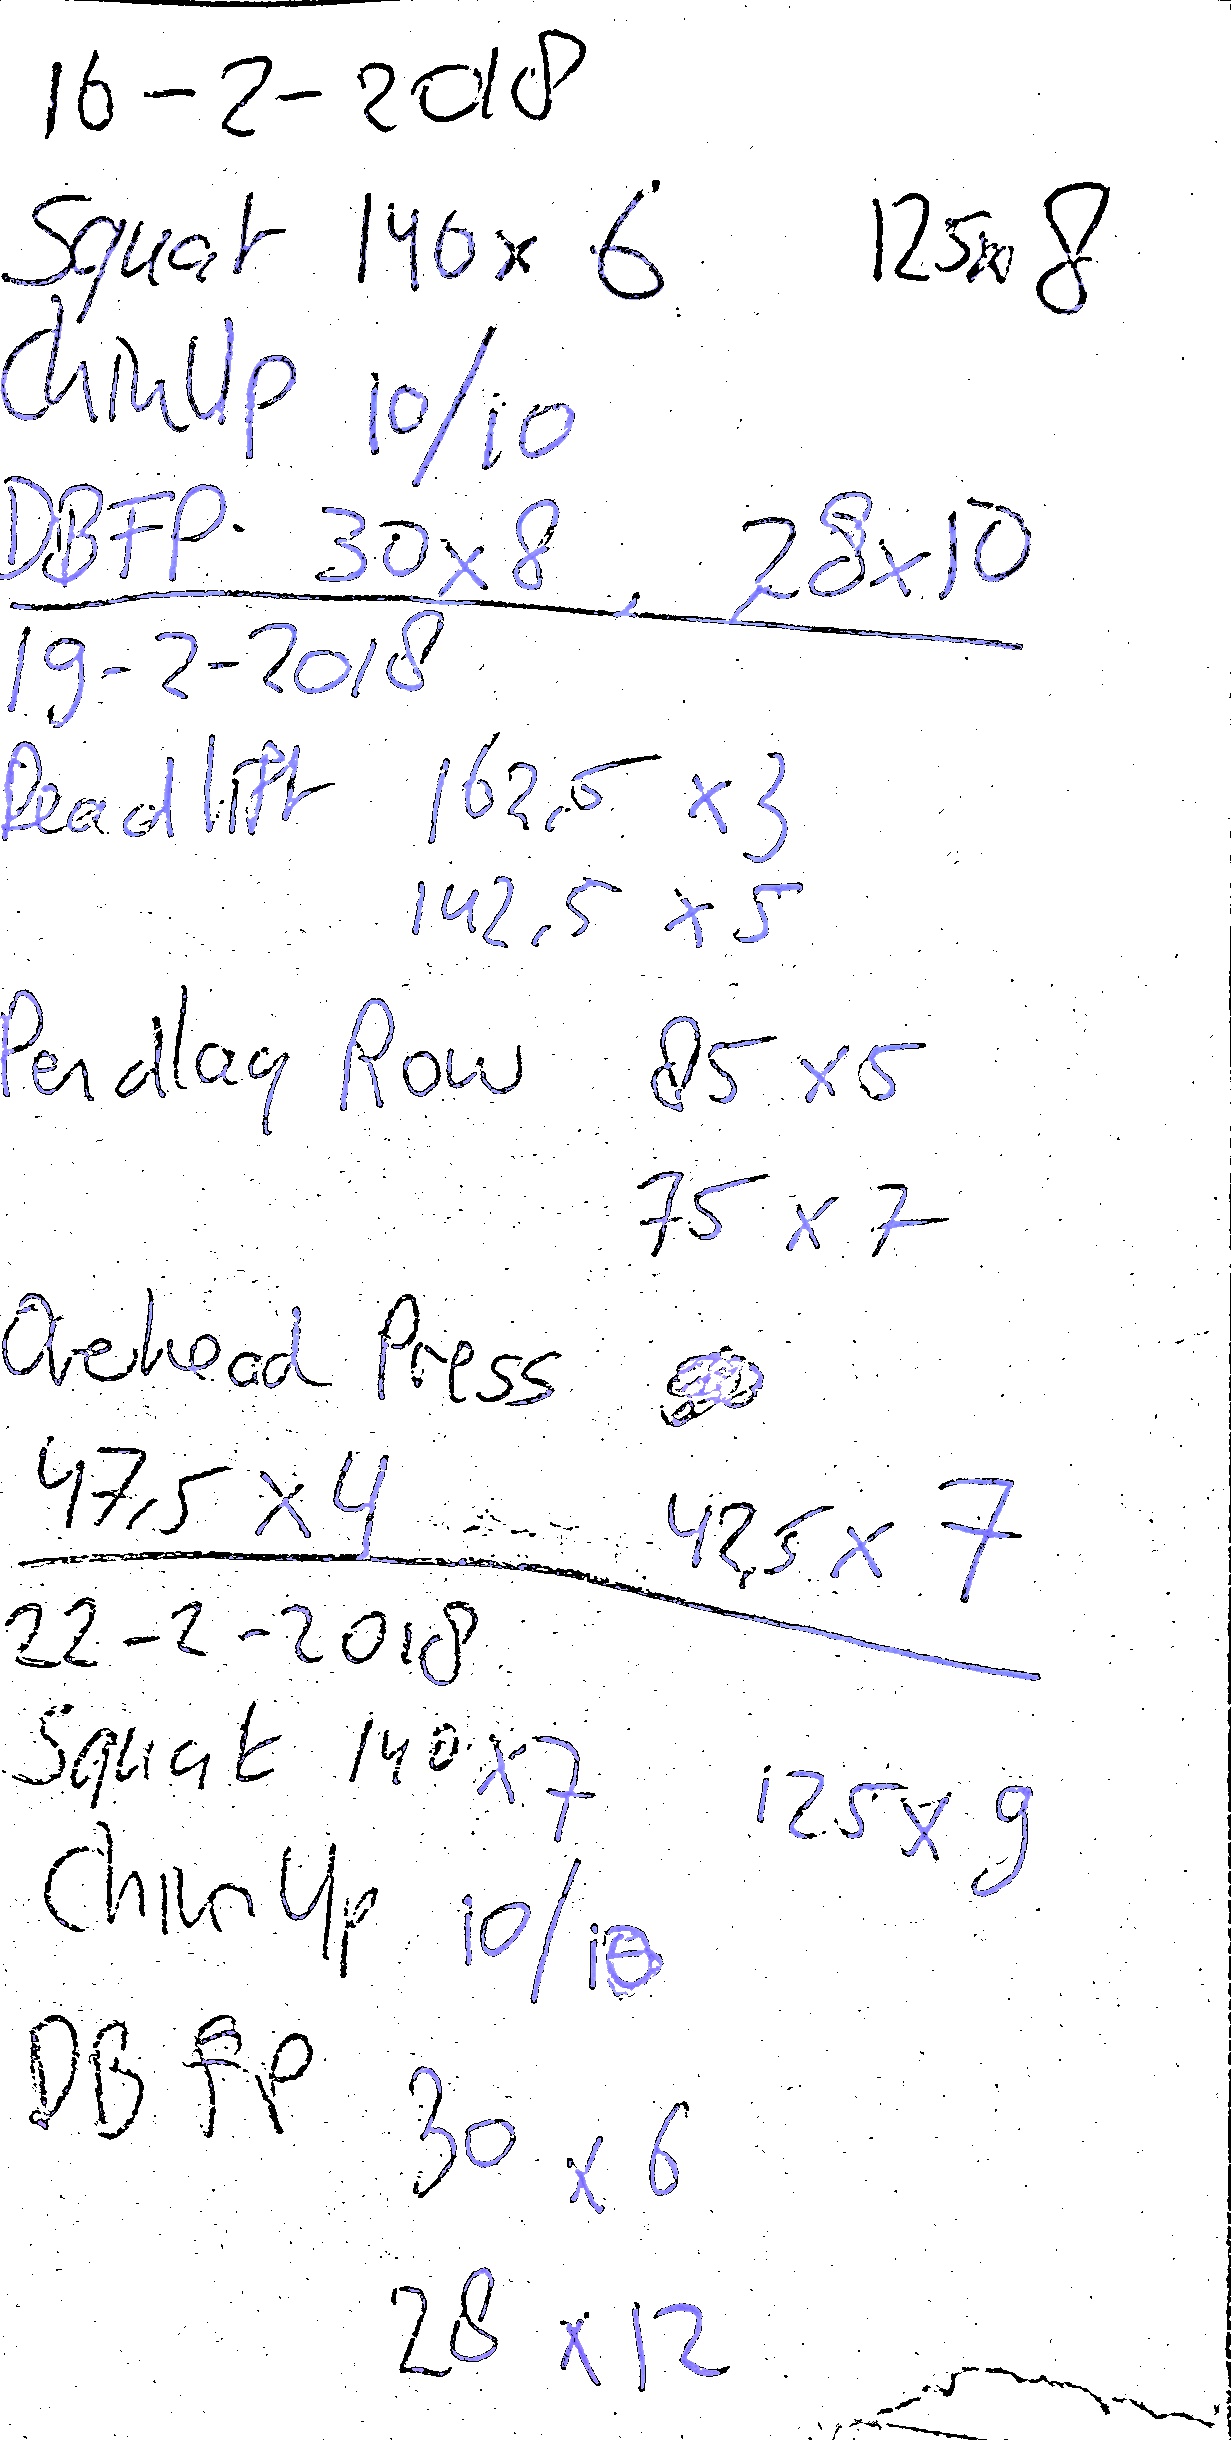 16-2-2018
Squat 140 x 6 125 x 8
Chin Up 10/10
DBFP. 30 x 8, 28 x 10
19-2-2018
Deadlift 162,5 x 3
142,5 x 5
Pendlay Row 85 x 5
75 x 7
Overhead Press
47,5 x 4 42,5 x 7
22-2-2018
Squat 140 x 7 125 x 9
Chin Up 10/10
DB FP 30 x 6
28 x 12